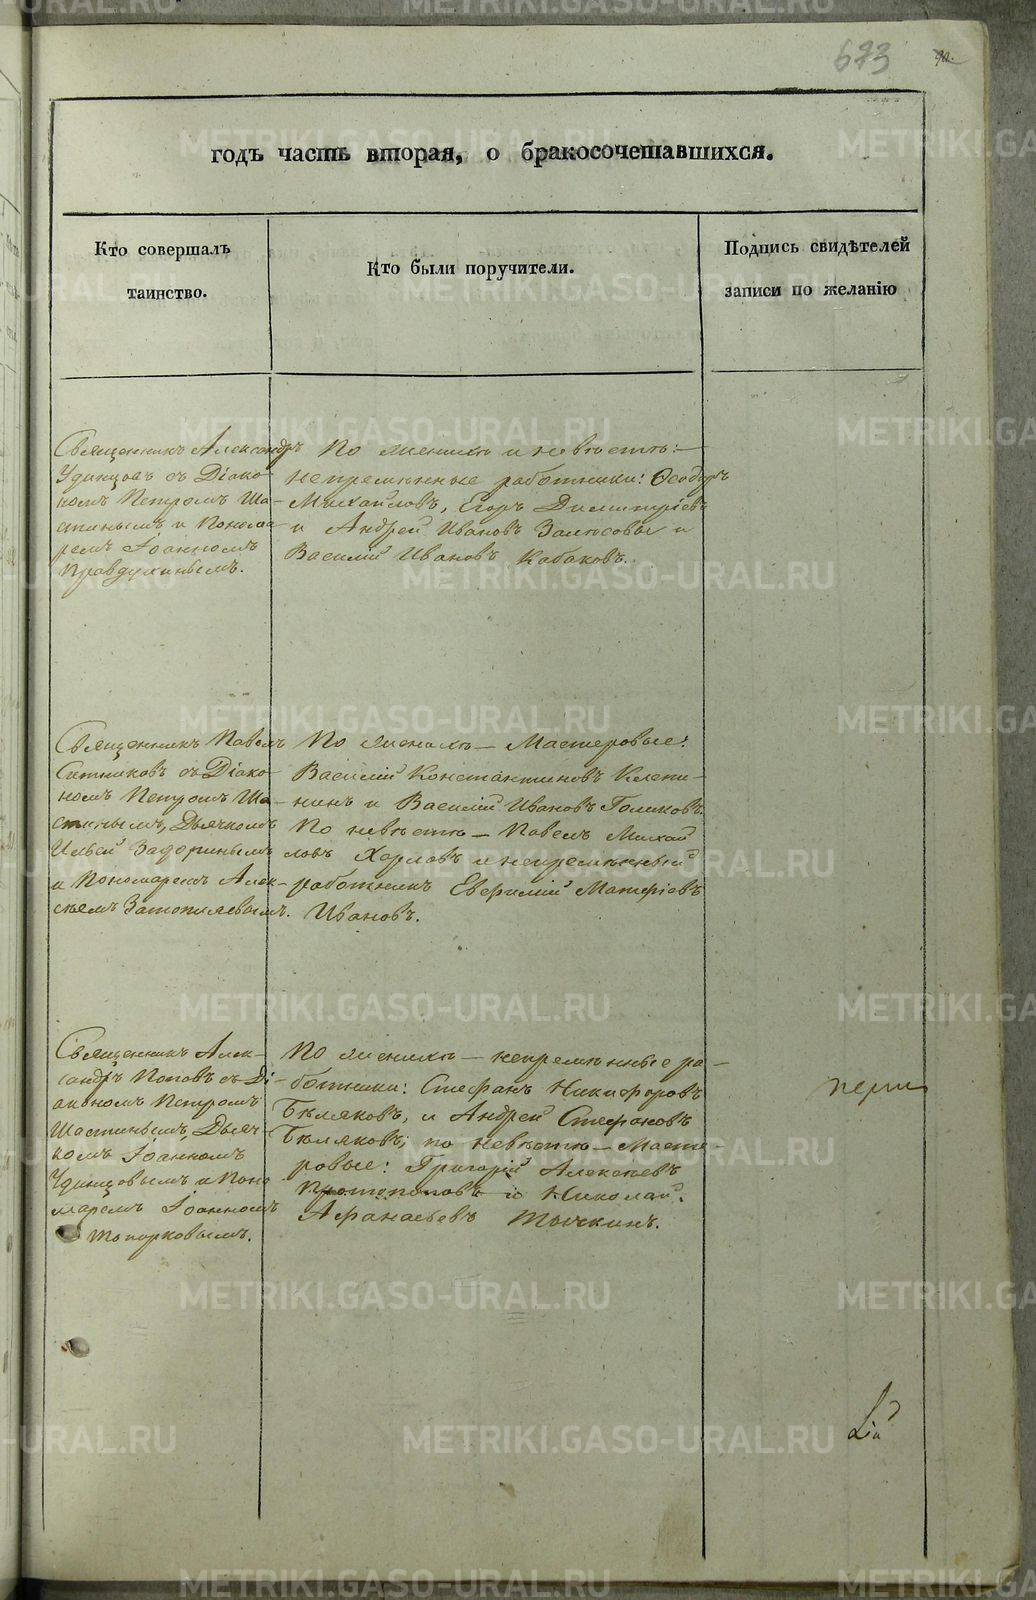 673
90.
годъ часть вторая, о бракосочетавшихся.
Кто совершалъ
таинство.
Кто были поручители.
Подпись свидѣтелей
записи по желанію
Священникъ Александръ
Удинцовъ съ Діако-
номъ Петромъ Ша-
стинымъ и Понома-
ремъ Іоанномъ
Правдухинымъ.
По женихѣ и невѣстѣ:
непремѣнные работники: Ѳеодоръ
Михайловъ, Егоръ Димитріевъ
и Андрей Ивановъ
и
Василій Ивановъ Кабаковъ.
Священникъ Павелъ
Ситниковъ съ Діако-
номъ Петромъ Ша-
стинымъ, Дьячкомъ
Ильей
и Пономаремъ Алек-
сѣемъ Затопляевымъ.
По женихѣ — Мастеровые:
Василій Константиновъ Клепи-
нинъ и Василій Ивановъ Голиковъ.
По невѣстѣ — Павелъ Михай
ловъ Харловъ и непремѣнный
работникъ Евфимій Матфіевъ
Ивановъ.
Священникъ Алек-
сандръ Поповъ съ Ді-
акономъ Петромъ
Шастинымъ, Дьяч-
комъ Іоанномъ
Удинцовымъ и Поно
маремъ Іоанномъ
Топорковымъ.
По женихѣ — непремѣнные ра-
ботники: Стефанъ Никифоровъ
Бѣляковъ, и Андрей Стефановъ
Бѣляковъ; по невѣстѣ — Масте-
ровые: Григорій Алексѣевъ
Протопоповъ и Николай
Афанасьевъ Тычкинъ.
METRIKI.GASO-URAL.RU